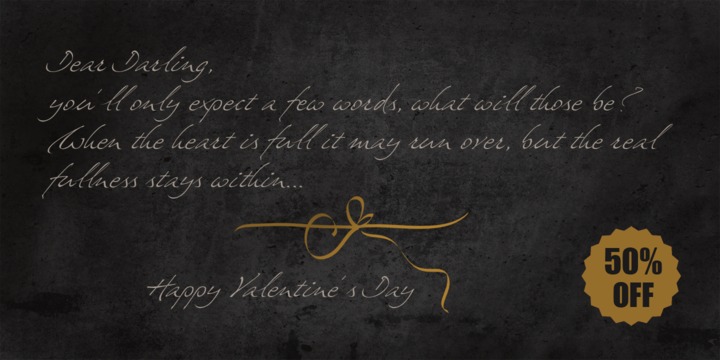 Dear Darling,
you'll only expect a few words, what will those be?
When the heart is full it may run over, but the real
fullness stays within...
Happy Valentine's Day
50%
OFF